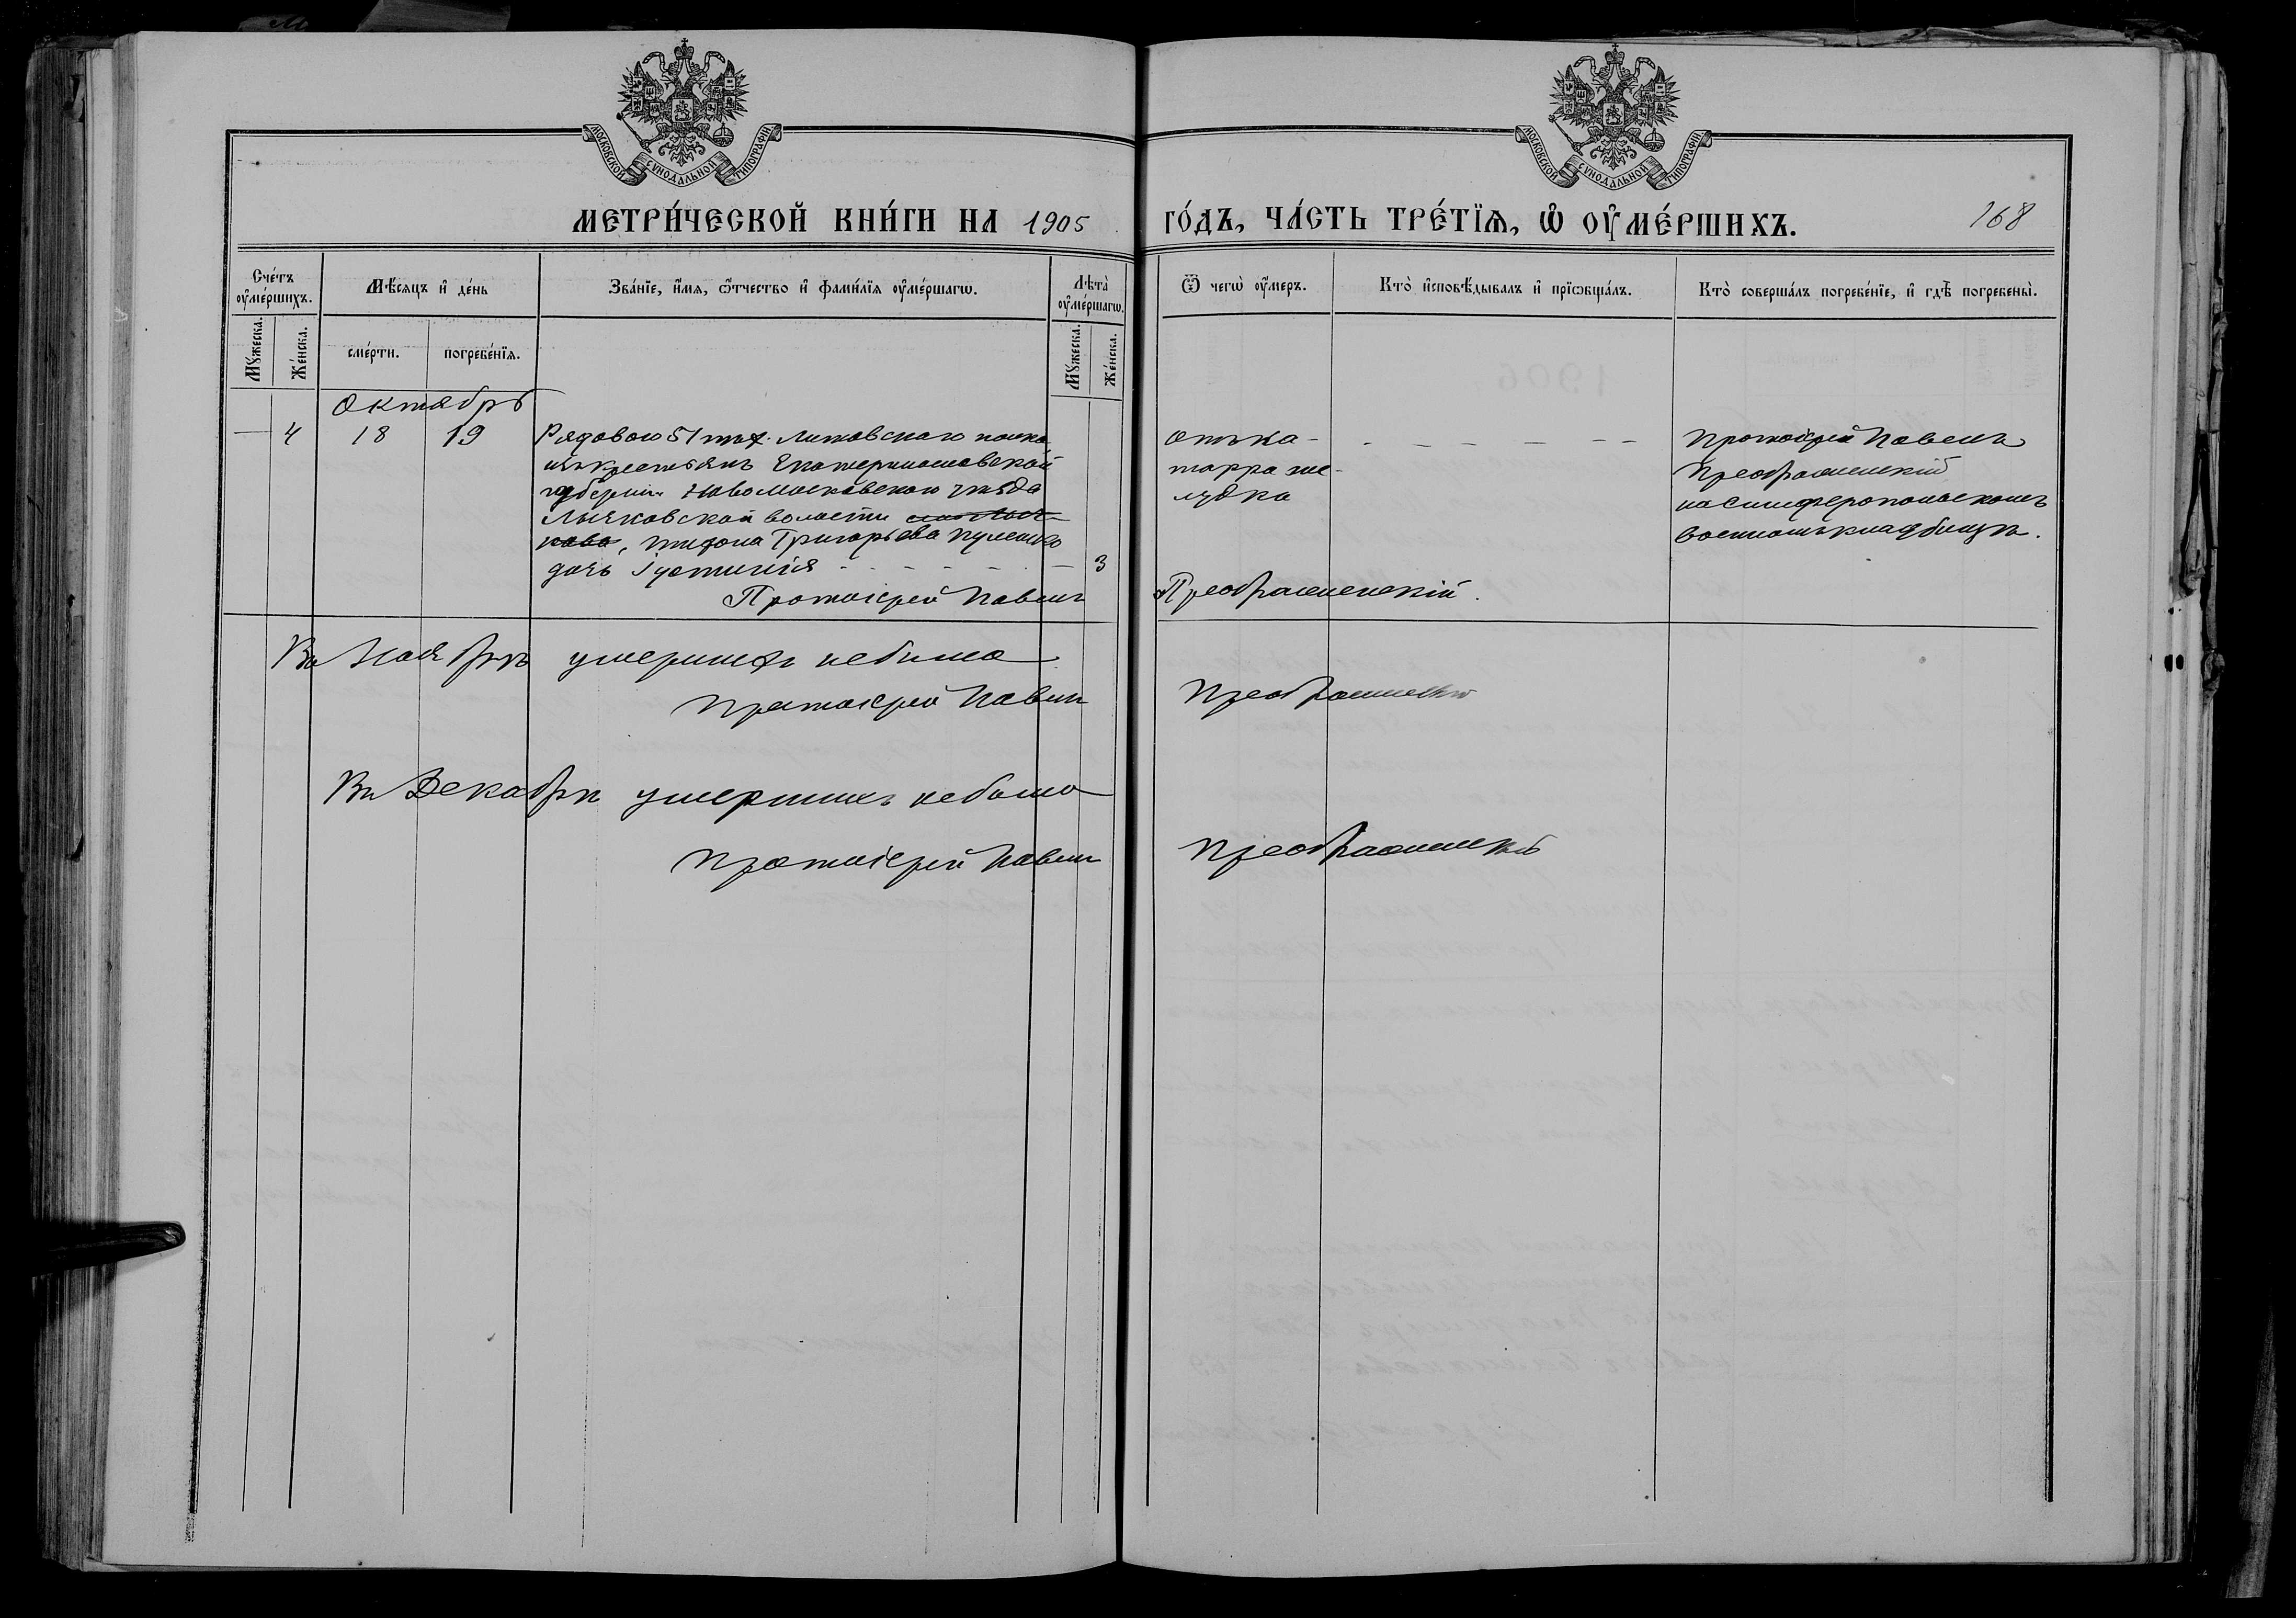 МОСКОВСКОЙ СѴНОДАЛЬНОЙ ТИПОГРАФІИ
МОСКОВСКОЙ СѴНОДАЛЬНОЙ ТИПОГРАФІИ
МЕТРИ́ЧЕСКОЙ КНИ́ГИ НА 1905 ГО́ДЪ, ЧА́СТЬ ТРЕ́ТЇѦ, Ѡ҆ ОУ҆МЕ́РШИХЪ.
168
Сче́тъ оу҆ме́ршихъ.
Мꙋ́жеска.
Же́нска.
Мѣ́сѧцъ и҆ де́нь
сме́рти.
погребе́нїѧ.
Зва́нїе, и҆́мѧ, ѻ҆́тчество и҆ фамі́лїѧ оу҆ме́ршагѡ.
Лѣта̀ оу҆ме́ршагѡ.
Мꙋ́жеска.
Же́нска.
Ѿ чегѡ̀ оу҆́меръ.
Кто̀ и҆сповѣ́дывалъ и҆ прїѡбща́лъ.
Кто̀ соверша́лъ погребе́нїе, и҆ гдѣ̀ погребены̀.
Октябрь
4
18
19
Рядового 51 пѣх. Литовскаго полка
изъ крестьянъ Екатеринославской
губерніи Новомосковскаго уѣзда
Лычковской волости
Григорьева
дочь Іустинія
3
Отъ ка-
тарра же-
лудка
Протоіерей Павелъ
Преображенскій
на Симферопольскомъ
военномъ кладбищѣ.
Протоіерей Павелъ Преображенскій.
Въ Ноябрѣ умершихъ не было
Протоіерей Павелъ Преображенскій
Въ Декабрѣ умершихъ не было
Протоіерей Павелъ Преображенскій